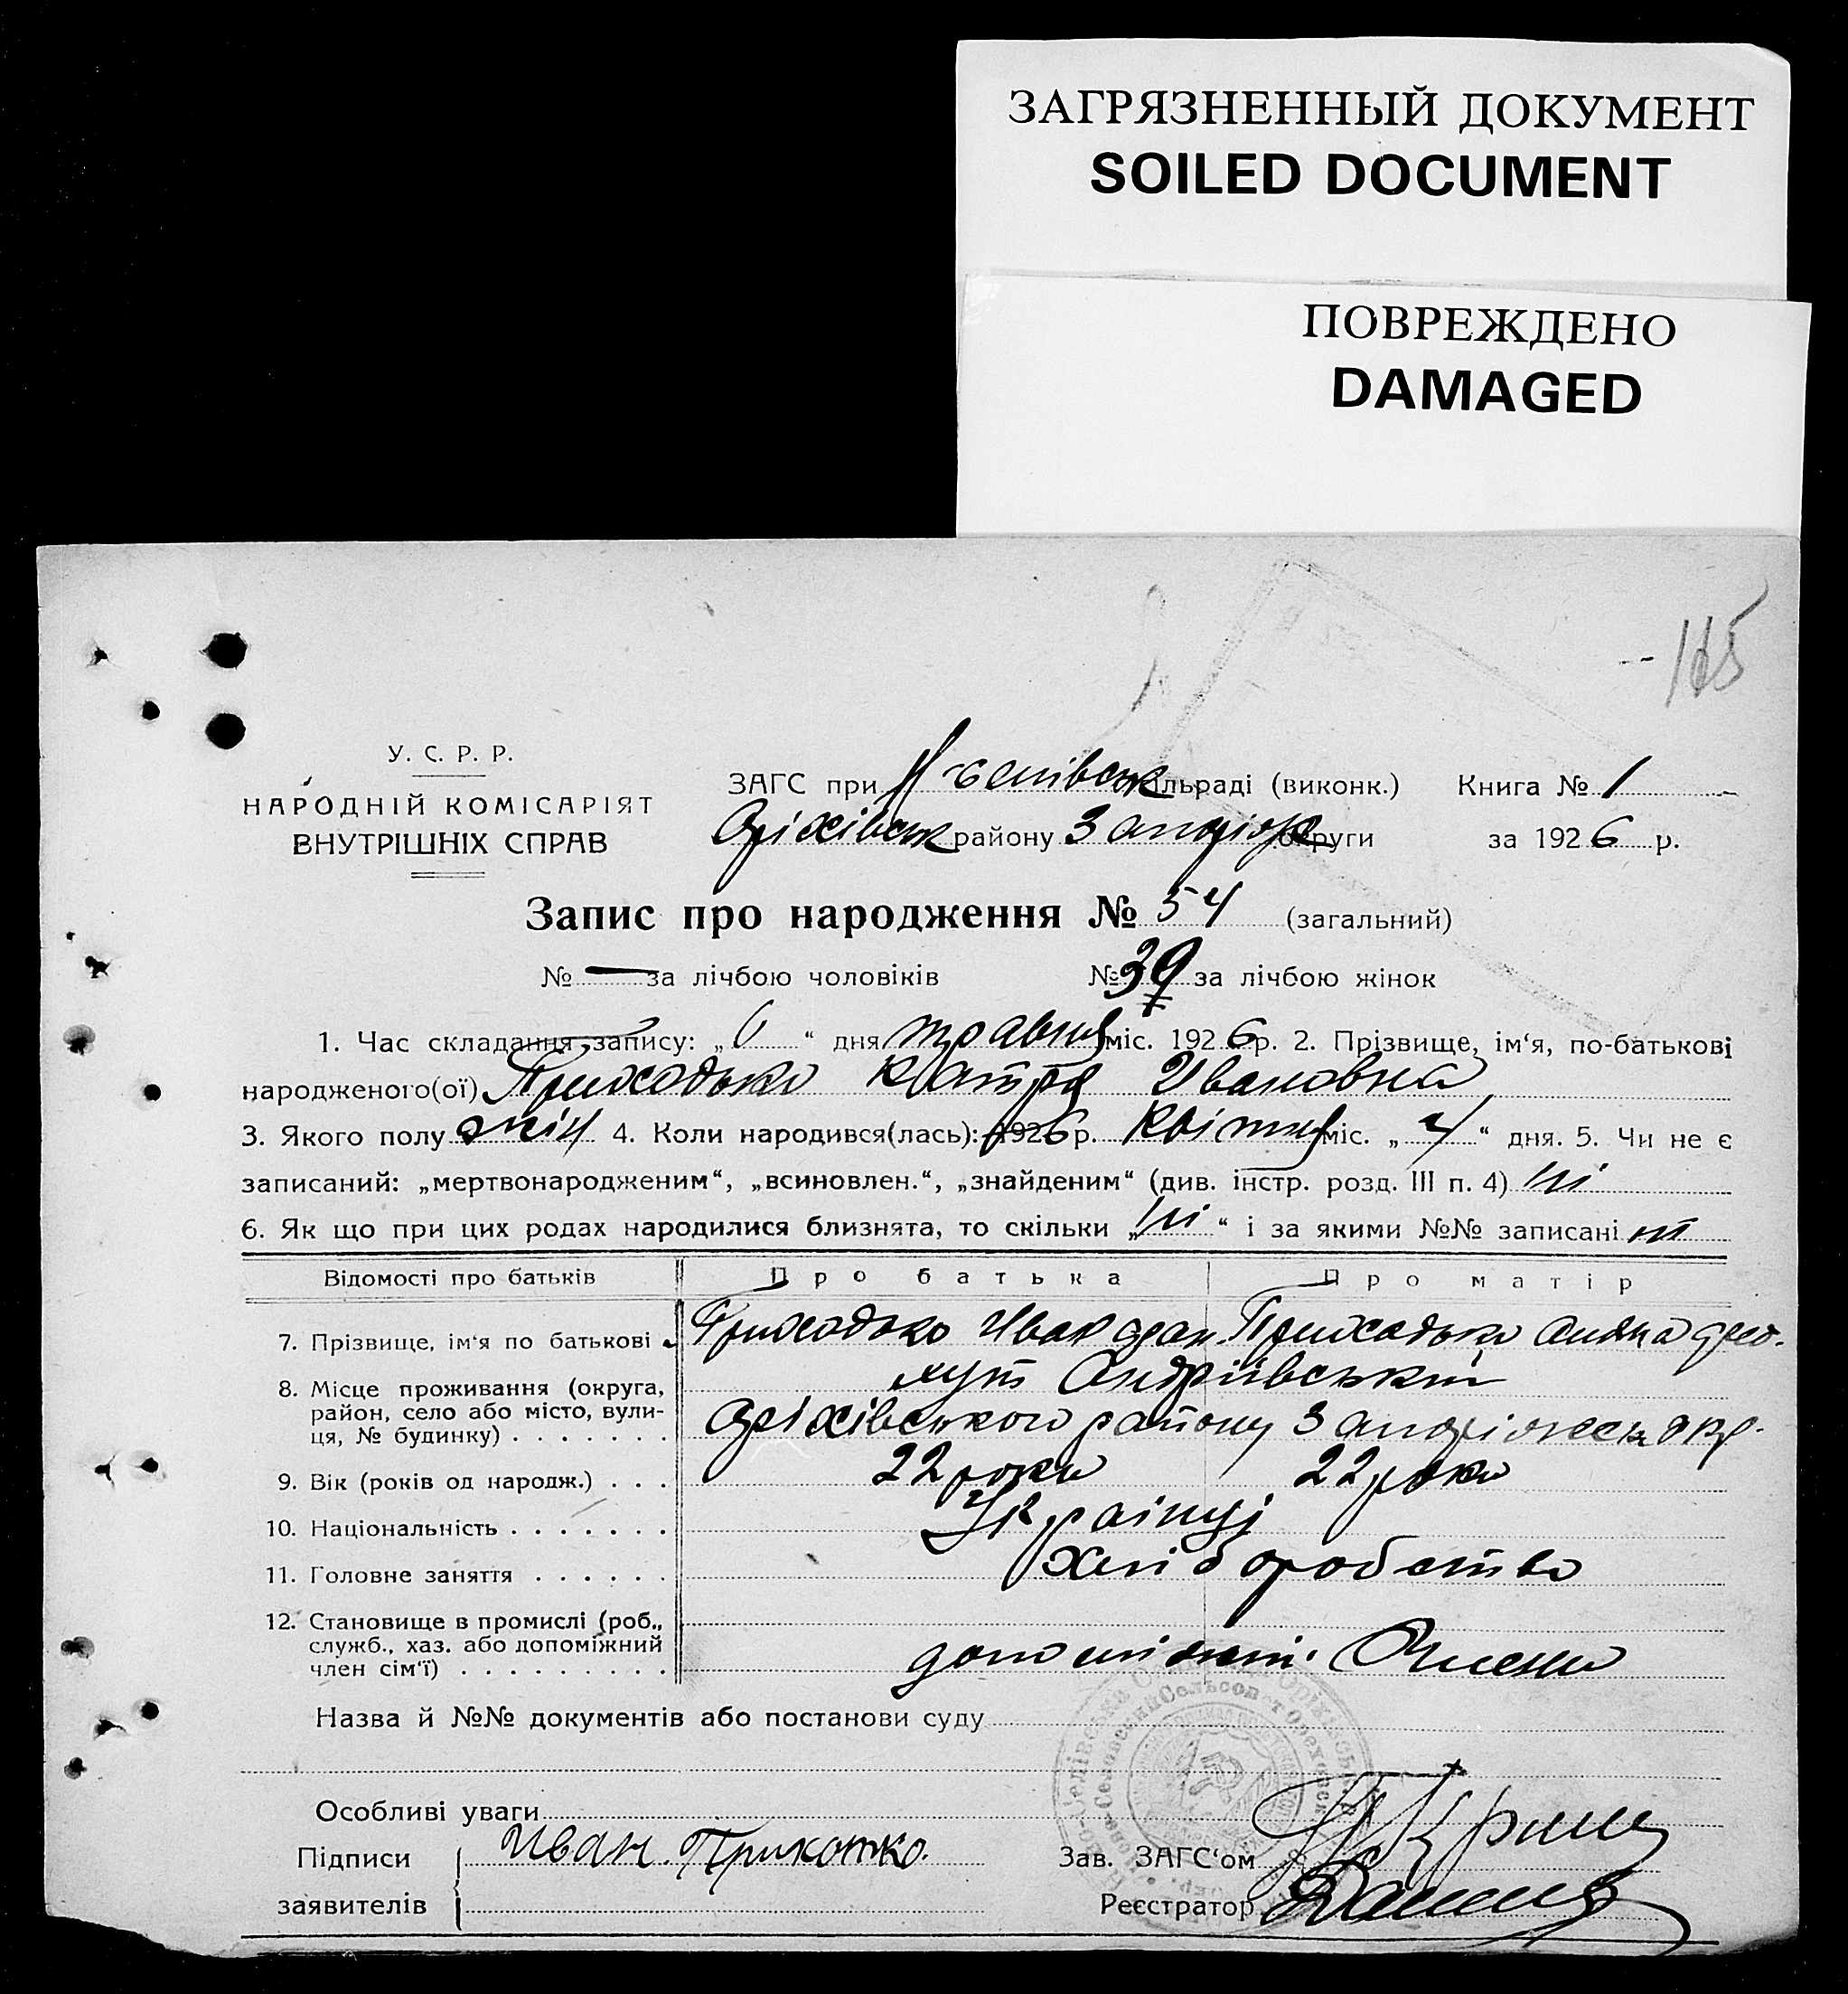 ЗАГРЯЗНЕННЫЙ ДОКУМЕНТ
SOILED DOCUMENT
ПОВРЕЖДЕНО
DAMAGED
165
У. С. Р. Р.
НАРОДНІЙ КОМІСАРІЯТ
ВНУТРІШНІХ СПРАВ
ЗАГС при ільраді (виконк.) Книга № 1
Оріхівськ району Запоріж округи за 1926 р.
Запис про народження № 54 (загальний)
№ — за лічбою чоловіків № 39 за лічбою жінок
1. Час складання запису: „6“ дня травня міс. 1926 р. 2. Прізвище, ім'я, по-батькові
народженого(ої) Приходько Катря Ивановна
3. Якого полу жін 4. Коли народився(лась): 1926 р. Квітня міс. „4“ дня. 5. Чи не є
записаний: „мертвонародженим“, „всиновлен.“, „знайденим“ (див. інстр. розд. III п. 4) ні
6. Як що при цих родах народилися близнята, то скільки „ні“ і за якими №№ записані ні
Відомості про батьків Про батька Про матір
7. Прізвище, ім'я по батькові Приходько Иван Приходько
8. Місце проживання (округа, хут Андріївський
район, село або місто, вули- Оріхівського району Запоріжськ окр.
ця, № будинку) . . . . . . .
9. Вік (років од народж.) . . . 22 роки 22 роки
10. Національність . . . . . . . Українці
11. Головне заняття . . . . . . хліборобство
12. Становище в промислі (роб.,
служб., хаз. або допоміжний
член сім'ї) . . . . . . . . . допоміжні члени
Назва й №№ документів або постанови суду
Особливі уваги
Підписи Иван. Прихотко. Зав. ЗАГС'ом
заявителів Реєстратор